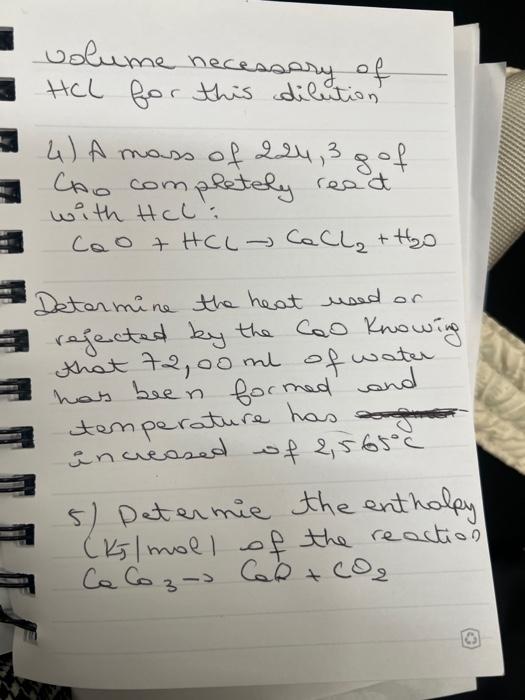 volume necessary of
HCL for this dilution
4) A mass of 224,3 g of
CaO completely react
with HCL :
CaO + HCL → CaCL₂ + H₂O
Determine the heat used or
rejected by the CaO Knowing
that 72,00 ml of water
has been formed and
temperature has
increased of 2,565°C
5) Determie the enthalpy
(KJ/mol) of the reaction
CaCo₃ → CaO + CO₂